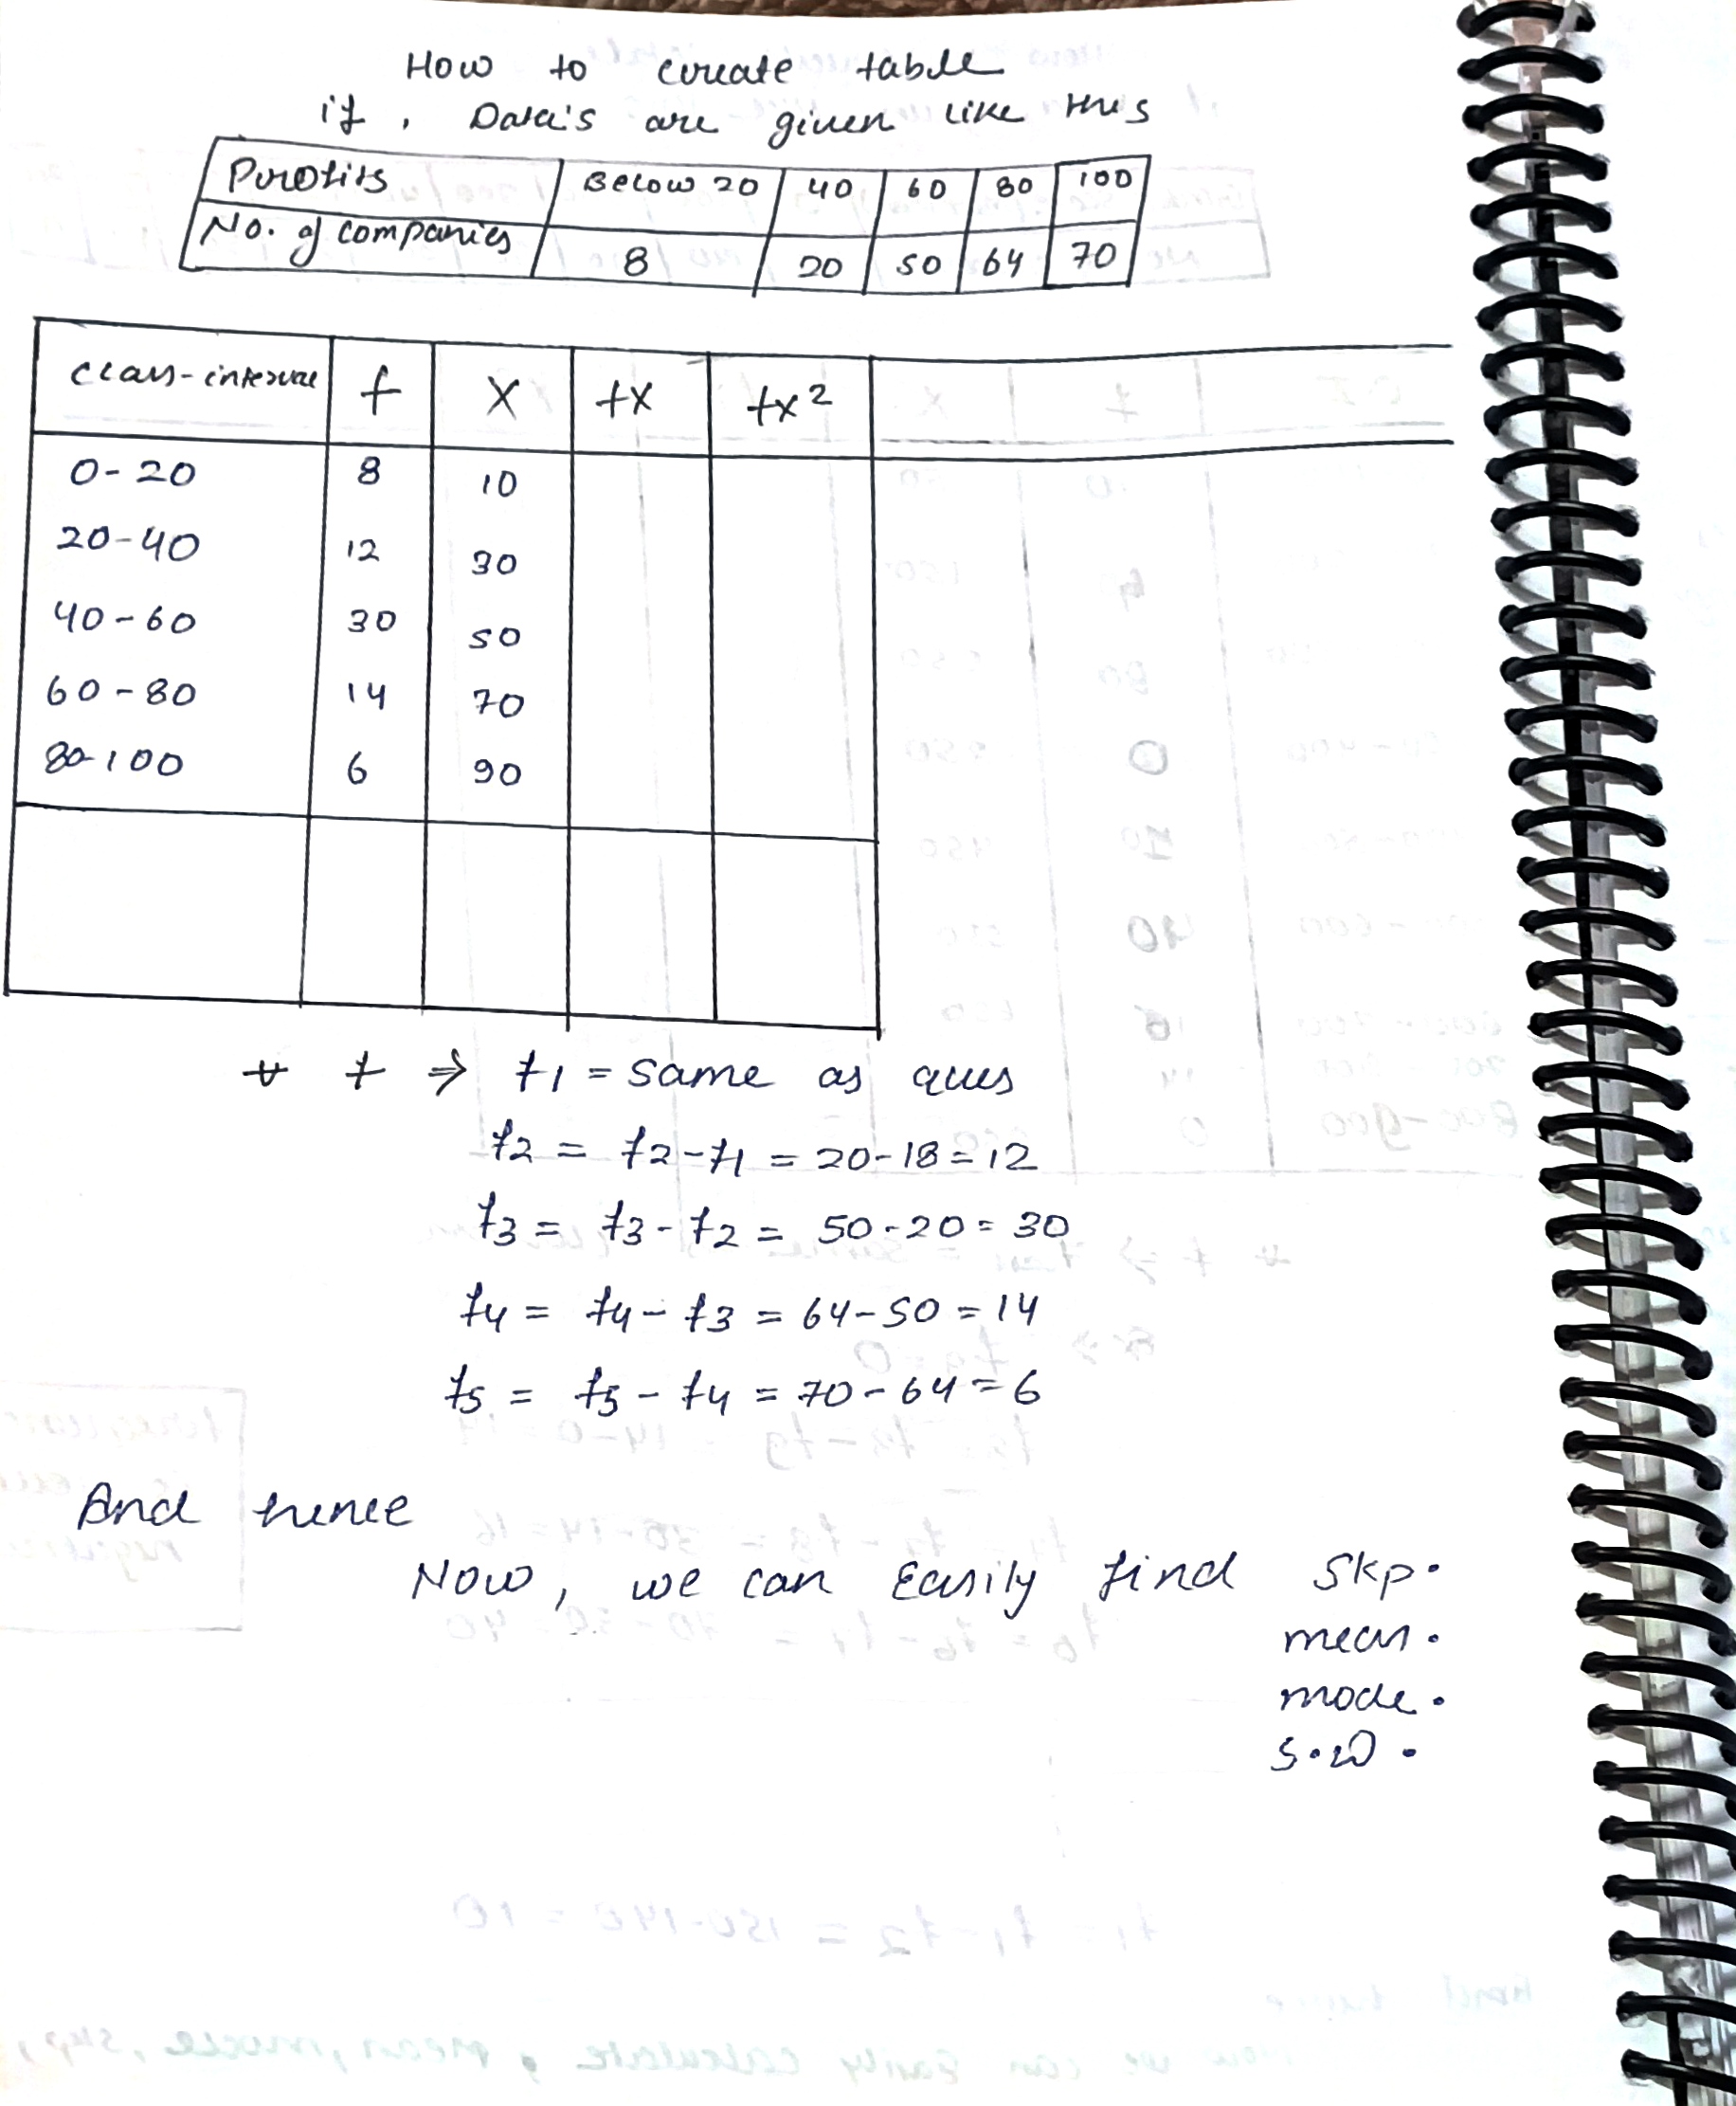 How to create table
if, Data's are given like this
Profits Below 20 40 60 80 100
No. of companies 8 20 50 64 70
class-interval f X fX fx²
0-20 8 10
20-40 12 30
40-60 30 50
60-80 14 70
80-100 6 90
* f ⇒ f1 = same as ques
f2 = f2-f1 = 20-18=12
f3 = f3-f2 = 50-20=30
f4 = f4-f3 = 64-50=14
f5 = f5-f4 = 70-64=6
And hence
Now, we can Easily find Skp.
mean.
mode.
S.D.